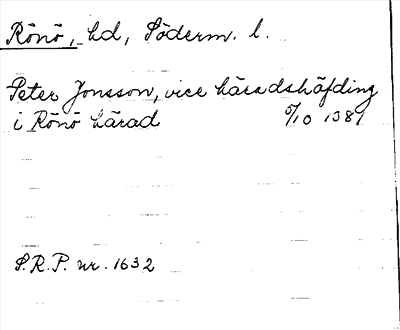 Rönö, hd, Söderm. l.
Peter Jonsson, vice häradshöfding
i Rönö härad 6/10 1381
S.R.P. nr. 1632